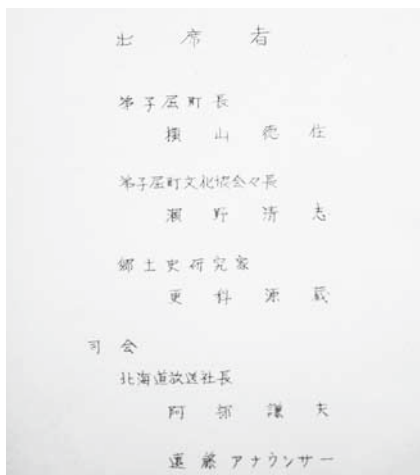 出席者
弟子屈町長
横山徳住
弟子屈町文化協会々長
瀬野清志
郷土史研究家
更科源蔵
司会
北海道放送社長
阿部謙夫
進藤アナウンサー